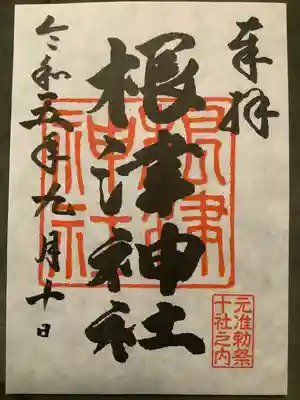 奉拝
根津神社
根津神社
令和五年九月十日
元准勅祭
十社之内